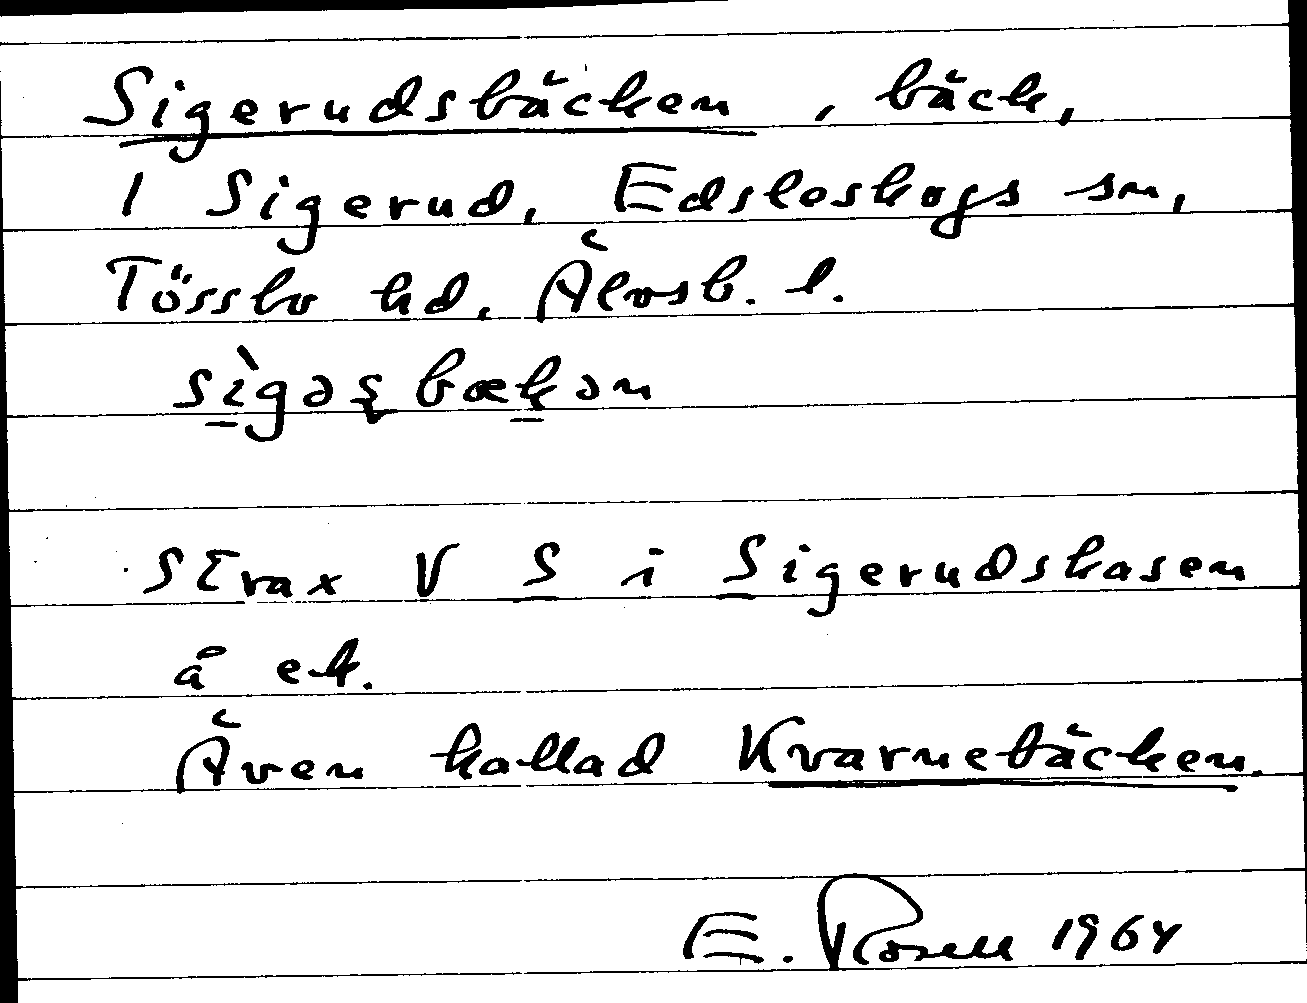 Sigerudsbäcken, bäck,
1 Sigerud, Edsleskogs sn,
Tössbo hd, Älvsb. l.
sìgəʂbækən
Strax V S i Sigerudskasen
å ek.
Även kallad Kvarnebäcken.
E. Rosell 1964